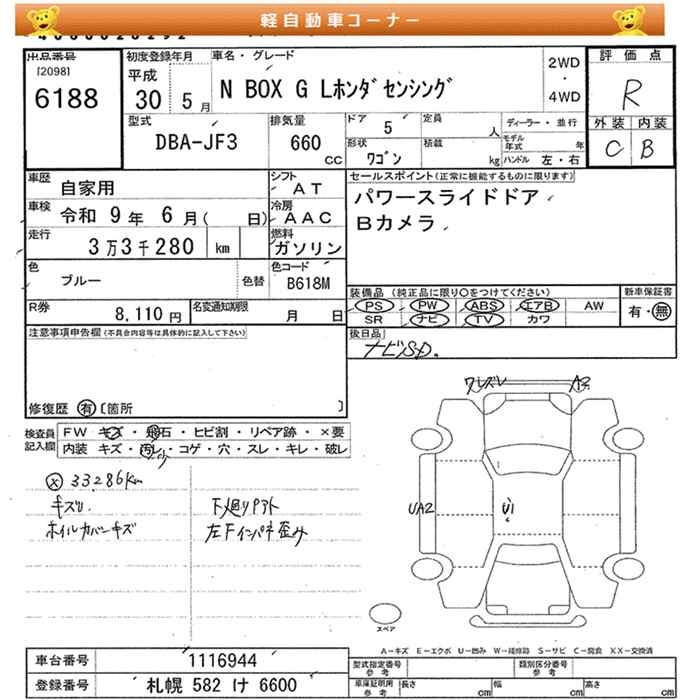 軽自動車コーナー
出品番号
[2098]
6188
初度登録年月
平成
30 5月
車名・グレード
N BOX G Lホンダセンシング
2WD
・
4WD
評価点
R
外装 内装
C B
型式
DBA-JF3
排気量
660
CC
ドア 5
定員 人
ディーラー・並行
形状
ワゴン
積載 kg
モデル年式 年
ハンドル 左・右
車歴 自家用
シフト AT
車検 令和 9年 6月( 日)
冷房 AAC
走行 3万3千280 km
燃料 ガソリン
色 ブルー
色替
色コード B618M
R券 8,110円
名変通知期限 月 日
セールスポイント(正常に機能するものに限ります)
パワースライドドア
Bカメラ
装備品(純正品に限り○をつけてください)
PS PW ABS エアB AW
SR ナビ TV カワ
新車保証書
有・無
後日品
ナビSD.
注意事項申告欄(不具合内容等は具体的に記入して下さい)
修復歴 有 〔箇所 〕
検査員記入欄
FW キズ・飛石・ヒビ割・リペア跡・×要
内装 キズ・汚れ・コゲ・穴・スレ・キレ・破レ
33286km
キズU
ホイルカバーキズ
下廻りアト
左Fインパネ歪み
ワレズレ
UA2
U1
スペア
A−キズ E−エクボ U−凹み W−補修跡 S−サビ C−腐食 XX−交換済
車台番号 1116944
登録番号 札幌 582 け 6600
型式指定番号
参考
類別区分番号
参考
車庫証明用
参考
長さ cm 幅 cm 高さ cm